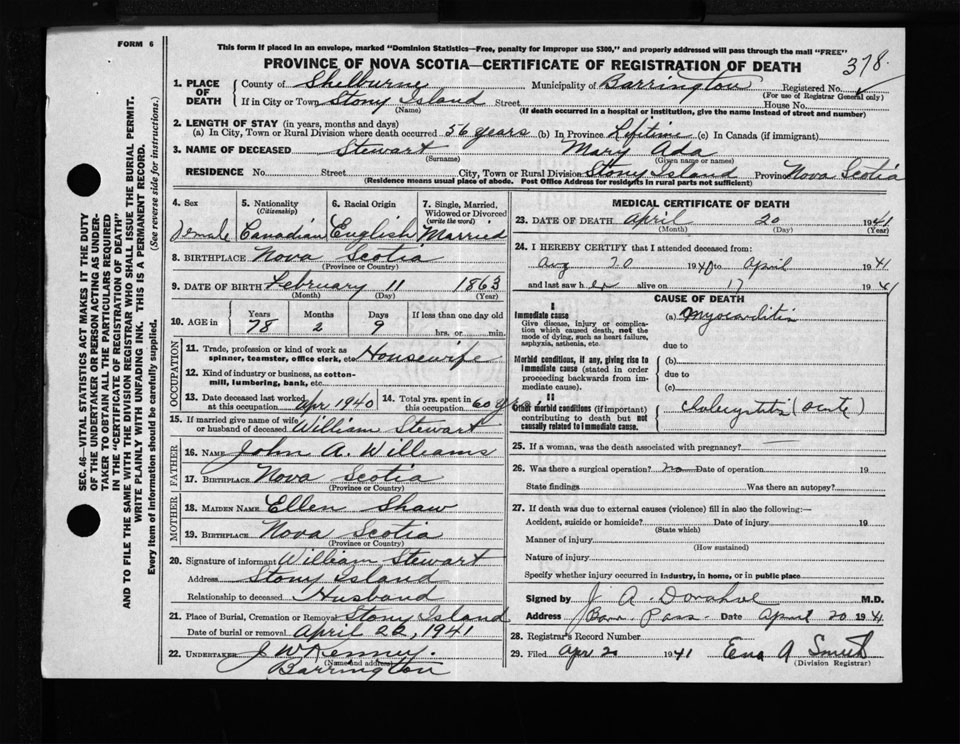 FORM 6
This form if placed in an envelope, marked "Dominion Statistics—Free, penalty for improper use $300," and properly addressed will pass through the mail "FREE"
PROVINCE OF NOVA SCOTIA—CERTIFICATE OF REGISTRATION OF DEATH
378
1. PLACE OF DEATH County of Shelburne Municipality of Barrington Registered No.
(For use of Registrar General only)
If in City or Town Stony Island Street House No.
(Name) (If death occurred in a hospital or institution, give the name instead of street and number)
2. LENGTH OF STAY (in years, months and days)
(a) In City, Town or Rural Division where death occurred 56 years (b) In Province Lifetime (c) In Canada (if immigrant)
3. NAME OF DECEASED Stewart Mary Ada
(Surname) (Given name or names)
RESIDENCE No. Street City, Town or Rural Division Stony Island Province Nova Scotia
(Residence means usual place of abode. Post Office Address for residents in rural parts not sufficient)
4. Sex 5. Nationality (Citizenship) 6. Racial Origin 7. Single, Married, Widowed or Divorced (write the word)
Female Canadian English Married
8. BIRTHPLACE Nova Scotia
(Province or Country)
9. DATE OF BIRTH February 11 1863
(Month) (Day) (Year)
10. AGE in Years Months Days If less than one day old
78 2 9 hrs. or min.
OCCUPATION
11. Trade, profession or kind of work as spinner, teamster, office clerk, etc. Housewife
12. Kind of industry or business, as cotton-mill, lumbering, bank, etc.
13. Date deceased last worked at this occupation Apr 1940 14. Total yrs. spent in this occupation 60 yrs.
15. If married give name of wife or husband of deceased William Stewart
FATHER
16. NAME John A. Williams
17. BIRTHPLACE Nova Scotia
(Province or Country)
MOTHER
18. MAIDEN NAME Ellen Shaw
19. BIRTHPLACE Nova Scotia
(Province or Country)
20. Signature of informant William Stewart
Address Stony Island
Relationship to deceased Husband
21. Place of Burial, Cremation or Removal Stony Island
Date of burial or removal April 22, 1941
22. UNDERTAKER J. W. Kenney.
(Name and address)
Barrington
MEDICAL CERTIFICATE OF DEATH
23. DATE OF DEATH April 20 1941
(Month) (Day) (Year)
24. I HEREBY CERTIFY that I attended deceased from:
Aug 20 1940 to April 1941
and last saw her alive on 17 1941
CAUSE OF DEATH
I
Immediate cause
Give disease, injury or complication which caused death, not the mode of dying, such as heart failure, asphyxia, asthenia, etc.
(a) Myocarditis
due to
Morbid conditions, if any, giving rise to immediate cause (stated in order proceeding backwards from immediate cause).
(b)
due to
(c)
II
Other morbid conditions (if important) contributing to death but not causally related to immediate cause.
Cholecystitis (acute)
25. If a woman, was the death associated with pregnancy?
26. Was there a surgical operation? no Date of operation 19
State findings Was there an autopsy?
27. If death was due to external causes (violence) fill in also the following:—
Accident, suicide or homicide? Date of injury 19
(State which)
Manner of injury
(How sustained)
Nature of injury
Specify whether injury occurred in industry, in home, or in public place
Signed by J. A. Donahoe M.D.
Address Barr. Pass. Date April 20 1941
28. Registrar's Record Number
29. Filed Apr 20 1941 Ena A Smith
(Division Registrar)
SEC. 46—VITAL STATISTICS ACT MAKES IT THE DUTY
OF THE UNDERTAKER OR PERSON ACTING AS UNDER-
TAKER TO OBTAIN ALL THE PARTICULARS REQUIRED
IN THE "CERTIFICATE OF REGISTRATION OF DEATH"
AND TO FILE THE SAME WITH THE DIVISION REGISTRAR WHO SHALL ISSUE THE BURIAL PERMIT.
WRITE PLAINLY WITH UNFADING INK. THIS IS A PERMANENT RECORD.
Every item of information should be carefully supplied. (See reverse side for instructions.)